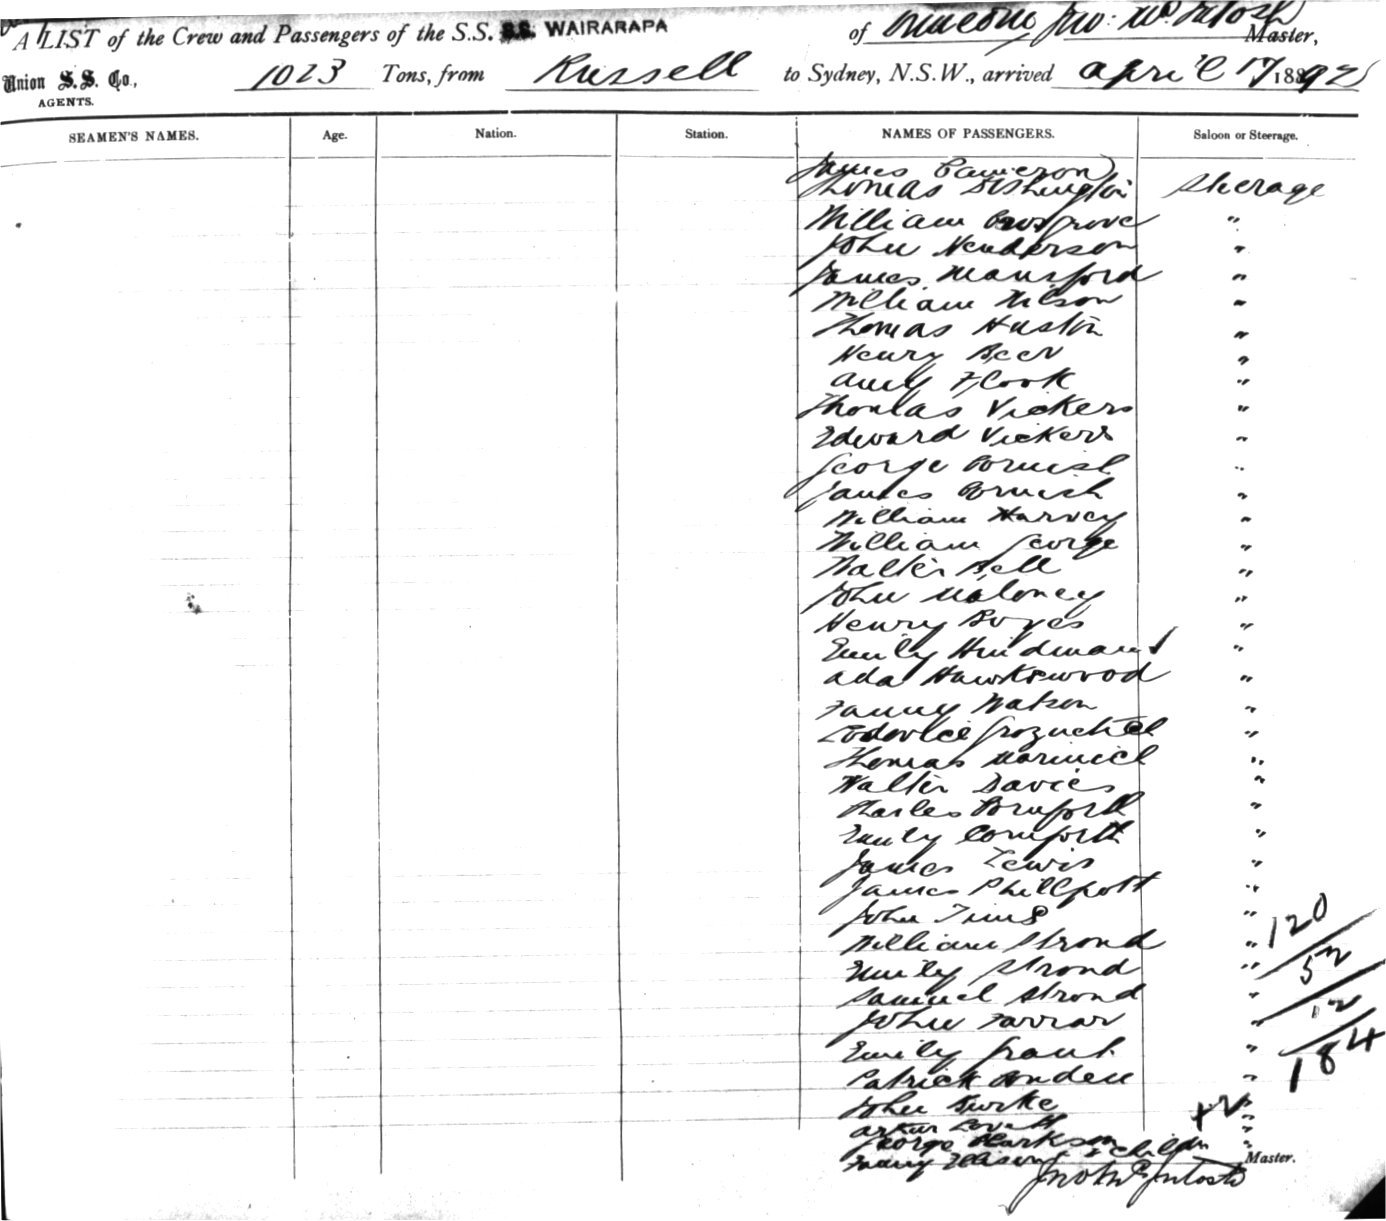 A LIST of the Crew and Passengers of the S.S. S.S. WAIRARAPA of Jno: McIntosh Master,
Union S.S. Co., AGENTS. 1023 Tons, from Russell to Sydney, N.S.W., arrived April 17/1892
SEAMEN'S NAMES. Age. Nation. Station. NAMES OF PASSENGERS. Saloon or Steerage.
James Cameron
Thomas Steerage
William Cosgrove "
John Henderson "
James Mansford "
William Wilson "
Thomas Huston "
Henry Beer "
Amy Flook "
Thomas Vickers "
Edward Vickers "
George Cornish "
James Cornish "
William Harvey "
William George "
Walter Bell "
John Maloney "
Henry Boyes "
Emily Hindman "
Ada Hawkswood "
Fanny Watson "
"
Thomas "
Walter Davies "
Charles Cornforth "
Emily Cornforth "
James Lewis "
James Phillpott "
John Tims "
William Strond " 120
Emily Strond " 52
Samuel Strond "
John Farrar " 12
Emily Grant " 184
Patrick "
John Burke " +2
Arthur Lovett "
George Clarkson "
Fanny 2 childn Master.
Jno McIntosh